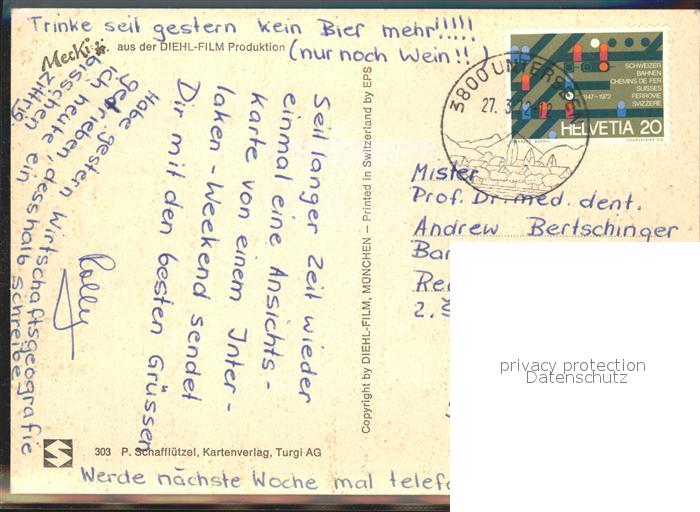 Trinke seit gestern kein Bier mehr!!!!!
(nur noch Wein!!)
Mecki
aus der DIEHL-FILM Produktion
Seit langer Zeit wieder
einmal eine Ansichts-
karte von einem Inter-
laken-Weekend sendet
Dir mit den besten Grüssen
Rolly
Habe gestern Wirtschaftsgeografie
getrieben, desshalb schreibe
ich heute ein
bisschen
zittrig
Copyright by DIEHL-FILM, MÜNCHEN – Printed in Switzerland by EPS
3800 UNTERSEEN
27. 3. 72
SCHWEIZER
BAHNEN
CHEMINS DE FER
SUISSES
FERROVIE
SVIZZERE
1847-1972
HELVETIA 20
COURVOISIER S.A.
Mister
Prof. Dr. med. dent.
Andrew Bertschinger
Ba
Re
2.
privacy protection
Datenschutz
S
303 P. Schafflützel, Kartenverlag, Turgi AG
Werde nächste Woche mal telefo